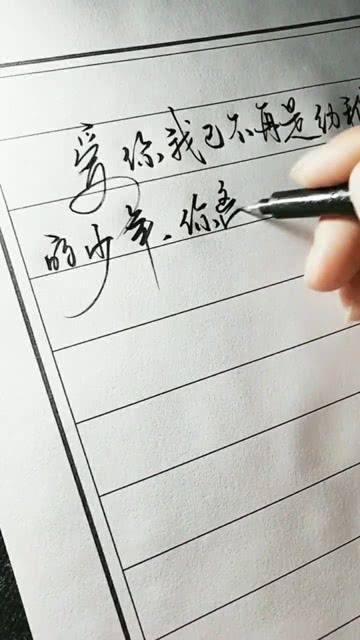 爱你我已不再是幼稚
的少年、你